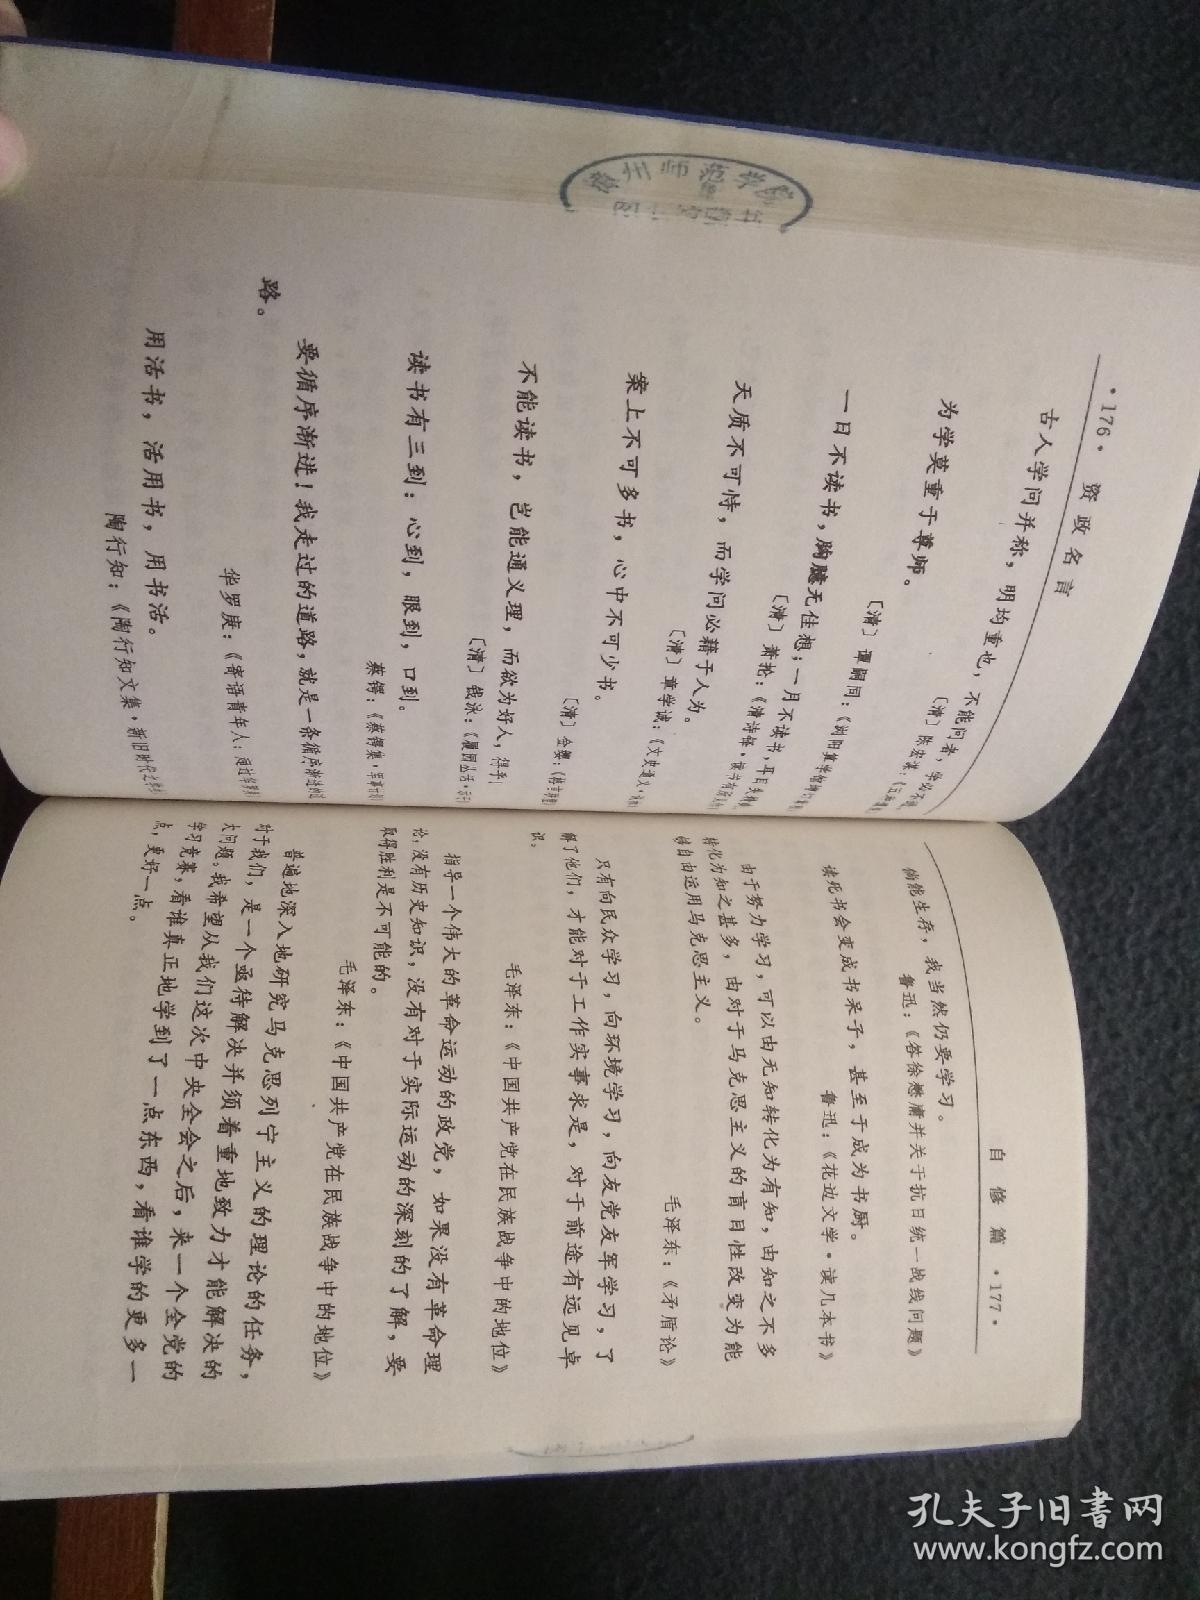 ·176· 资政名言
古人学问并称，明均重也，不能问者，学
〔清〕陈宏谋：
为学莫重于尊师。
〔清〕谭嗣同：《浏阳算学馆
一日不读书，胸臆无佳想；一月不读书，耳目失
〔清〕萧抡：《清诗铎·读书有所
天质不可恃，而学问必藉于人为。
〔清〕章学诚：《文史通义·
案上不可多书，心中不可少书。
〔清〕金缨：《格言联璧》
不能读书，岂能通义理，而欲为好人，得乎，
〔清〕钱泳：《履园丛话·
读书有三到：心到，眼到，口到。
蔡锷：《蔡锷集·
要循序渐进！我走过的道路，就是一条循序渐进的道
路。
华罗庚：《寄语青年人：
用活书，活用书，用书活。
陶行知：《陶行知文集·新旧时代之学生
自修篇 ·177·
倘能生存，我当然仍要学习。
鲁迅：《答徐懋庸并关于抗日统一战线问题》
读死书会变成书呆子，甚至于成为书厨。
鲁迅：《花边文学·读几本书》
由于努力学习，可以由无知转化为有知，由知之不多
转化为知之甚多，由对于马克思主义的盲目性改变为能
够自由运用马克思主义。
毛泽东：《矛盾论》
只有向民众学习，向环境学习，向友党友军学习，了
解了他们，才能对于工作实事求是，对于前途有远见卓
识。
毛泽东：《中国共产党在民族战争中的地位》
指导一个伟大的革命运动的政党，如果没有革命理
论，没有历史知识，没有对于实际运动的深刻的了解，要
取得胜利是不可能的。
毛泽东：《中国共产党在民族战争中的地位》
普遍地深入地研究马克思列宁主义的理论的任务，
对于我们，是一个亟待解决并须着重地致力才能解决的
大问题。我希望从我们这次中央全会之后，来一个全党的
学习竞赛，看谁真正地学到了一点东西，看谁学的更多一
点，更好一点。
州师范学院
孔夫子旧书网
www.kongfz.com